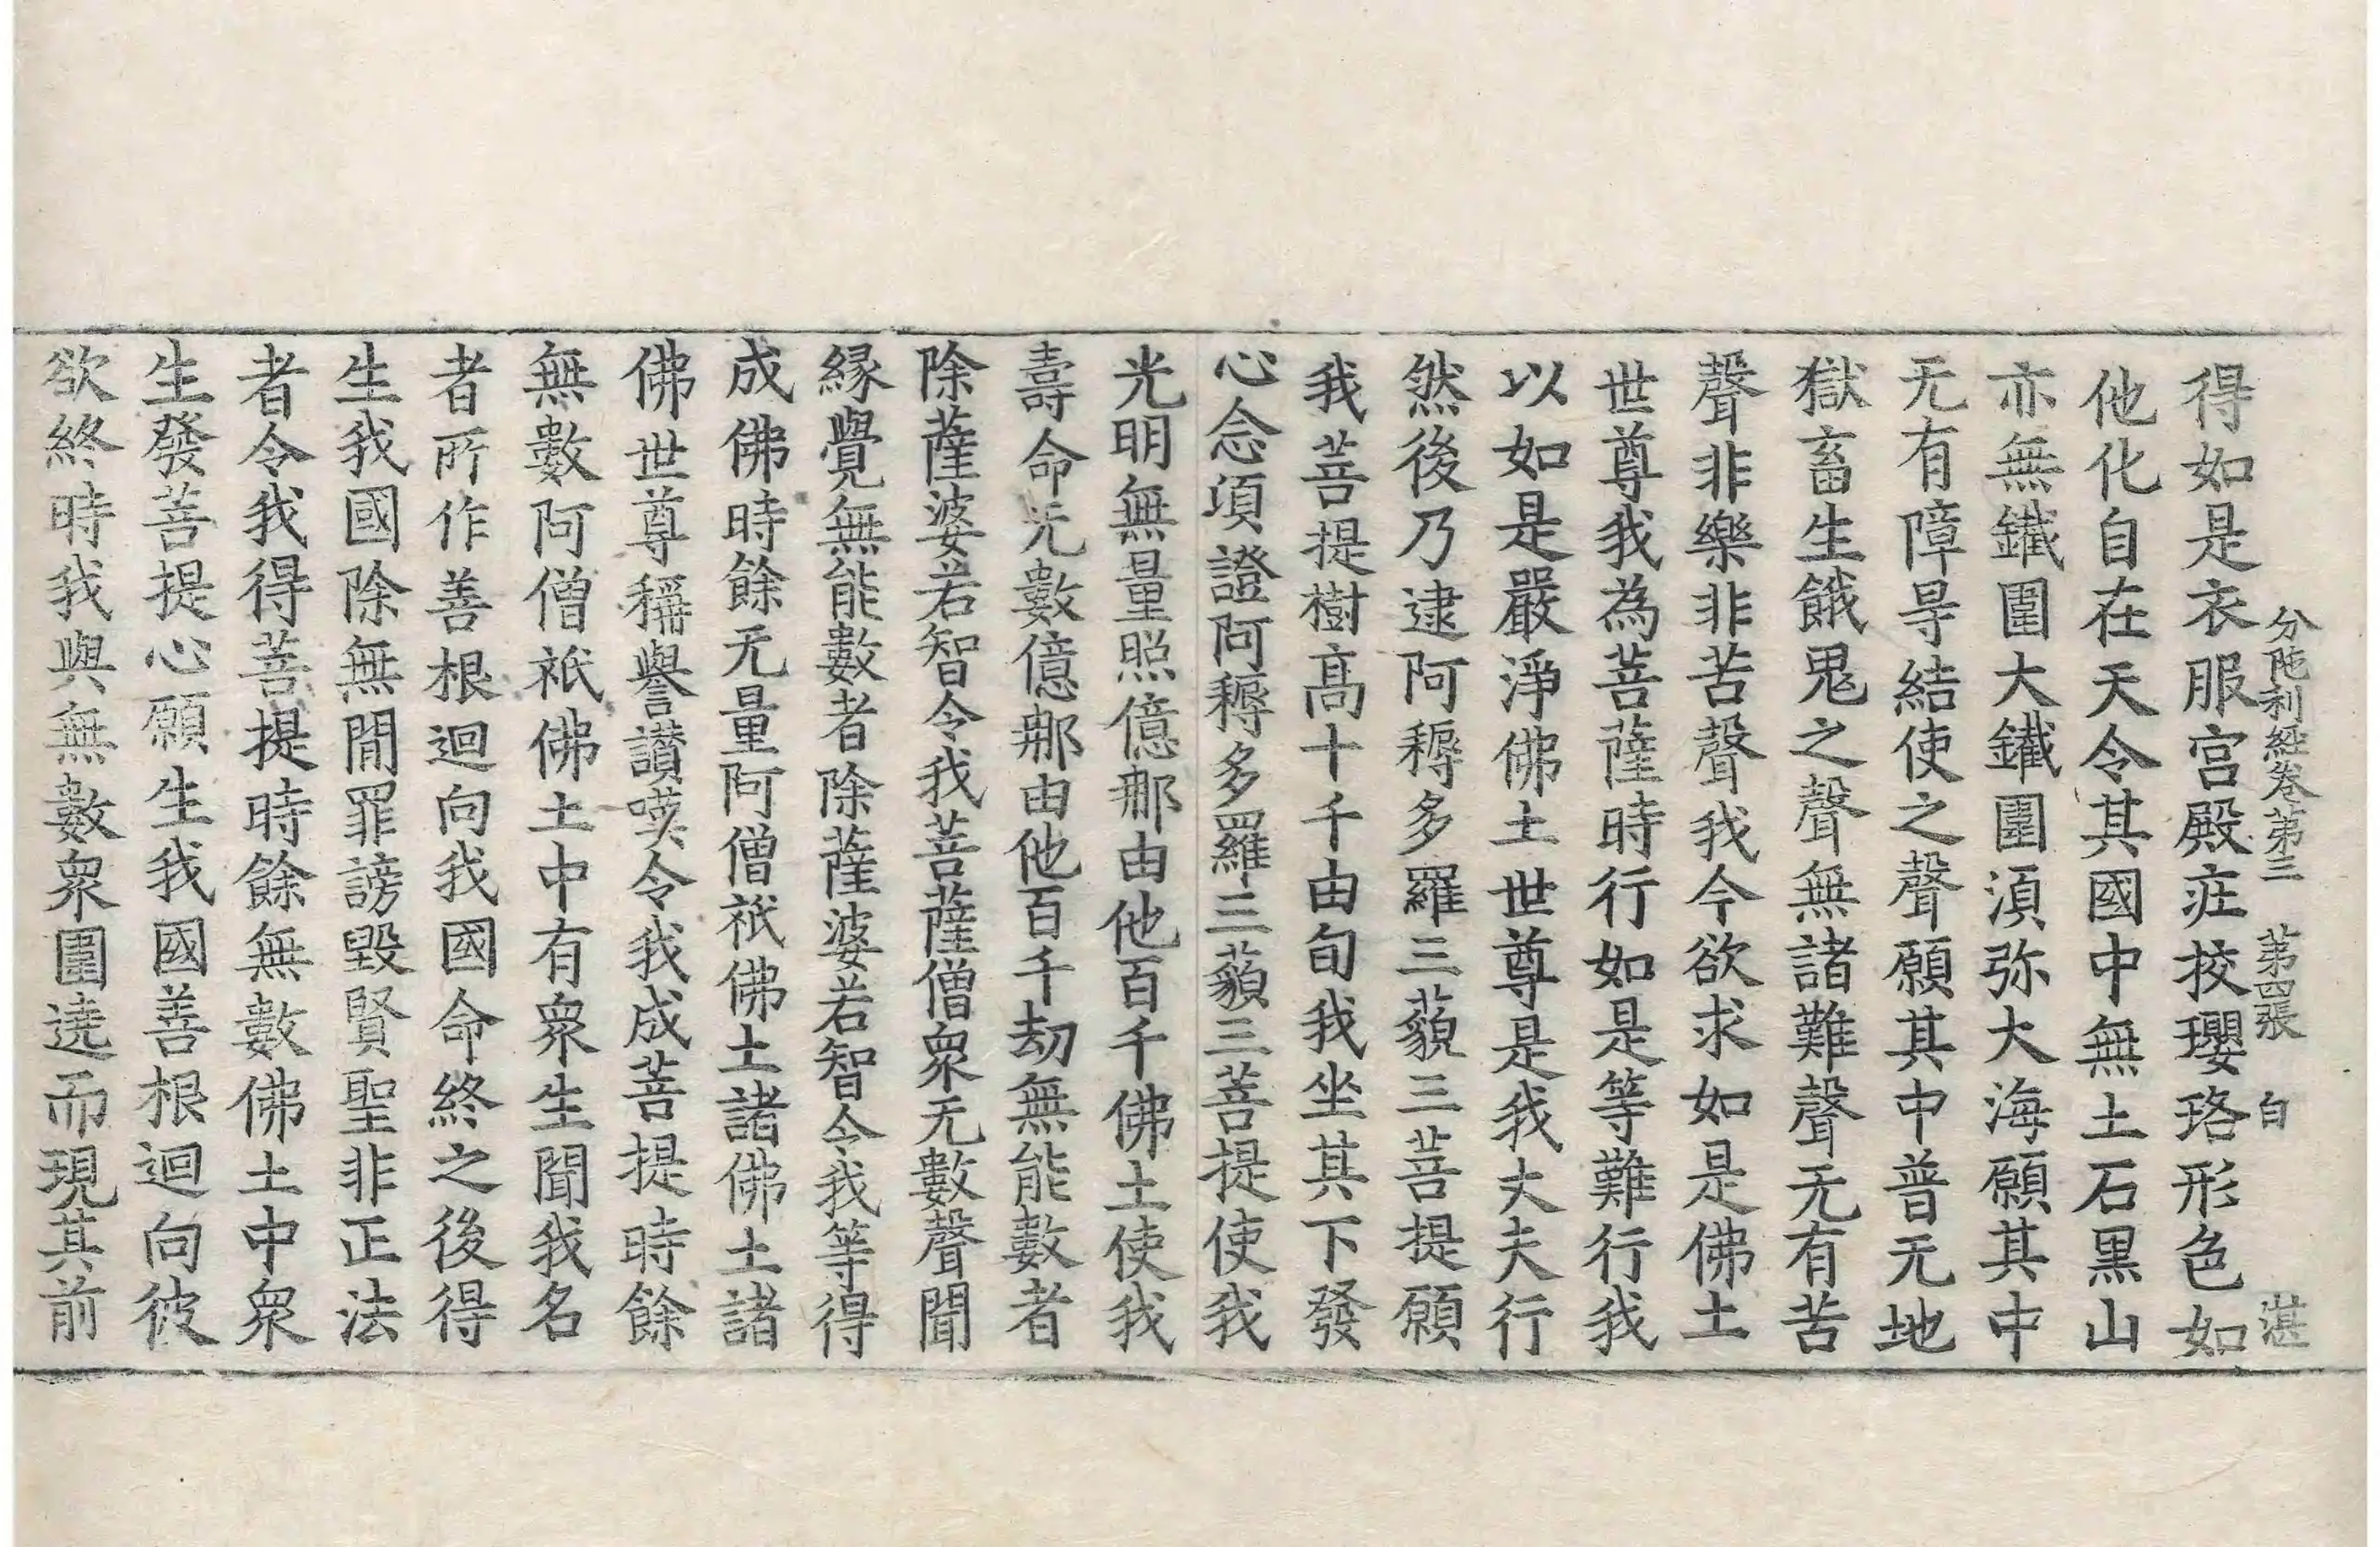 分陁利經卷第三　第四張　白　湛
得如是衣服宮殿庄挍瓔珞形色如
他化自在天令其國中無土石黑山
亦無鐵圍大鐵圍湏弥大海願其中
无有障㝵結使之聲願其中普无地
獄畜生餓鬼之聲無諸難聲无有苦
聲非樂非苦聲我今欲求如是佛土
世尊我為菩薩時行如是等難行我
以如是嚴淨佛土世尊是我丈夫行
然後乃逮阿耨多羅三藐三菩提願
我菩提樹高十千由旬我坐其下發
心念項證阿耨多羅三藐三菩提使我
光明無量照億那由他百千佛土使我
壽命无數億那由他百千劫無能數者
除薩婆若智令我菩薩僧衆无數聲聞
緣覺無能數者除薩婆若智令我等得
成佛時餘无量阿僧祇佛土諸佛土諸
佛世尊稱譽讃嘆令我成菩提時餘
無數阿僧祇佛土中有衆生聞我名
者所作善根迴向我國命終之後得
生我國除無閒罪謗毀賢聖非正法
者令我得菩提時餘無數佛土中衆
生發菩提心願生我國善根迴向彼
欲終時我與無數衆圍遶而現其前